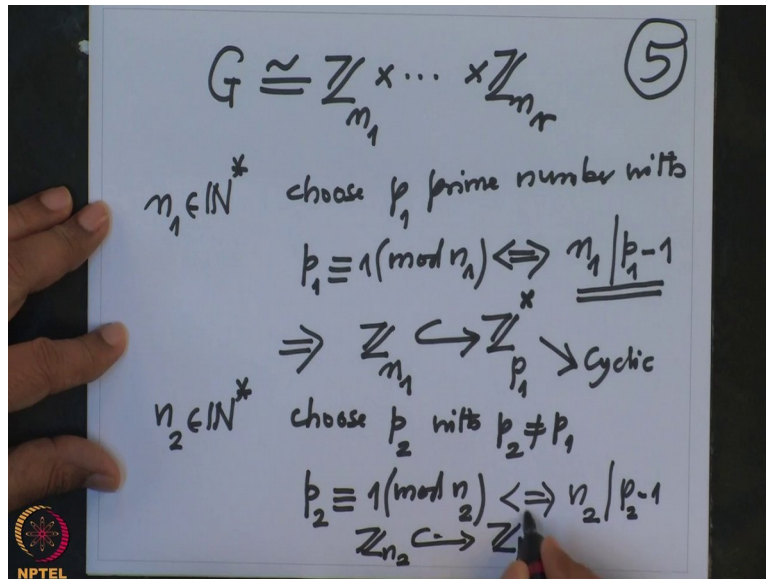 G ≅ ℤ_{n_1} × ⋯ × ℤ_{n_r} ⑤
n_1 ∈ ℕ^* choose p_1 prime number with
p_1 ≡ 1 (mod n_1) ⟺ n_1 | p_1 - 1
⇒ ℤ_{n_1} ↪ ℤ_{p_1}^* ↘ Cyclic
n_2 ∈ ℕ^* choose p_2 with p_2 ≠ p_1
p_2 ≡ 1 (mod n_2) ⟺ n_2 | p_2 - 1
ℤ_{n_2} ↪ ℤ
NPTEL